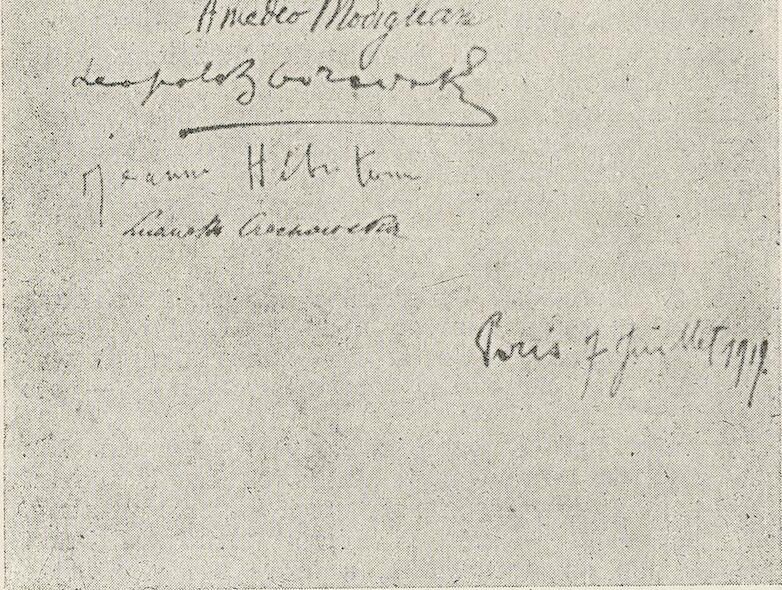 Amedeo Modigliani
Leopold Zborowski
Jeanne Hébuterne
Lunia Czechowska
Paris 7 Juillet 1919